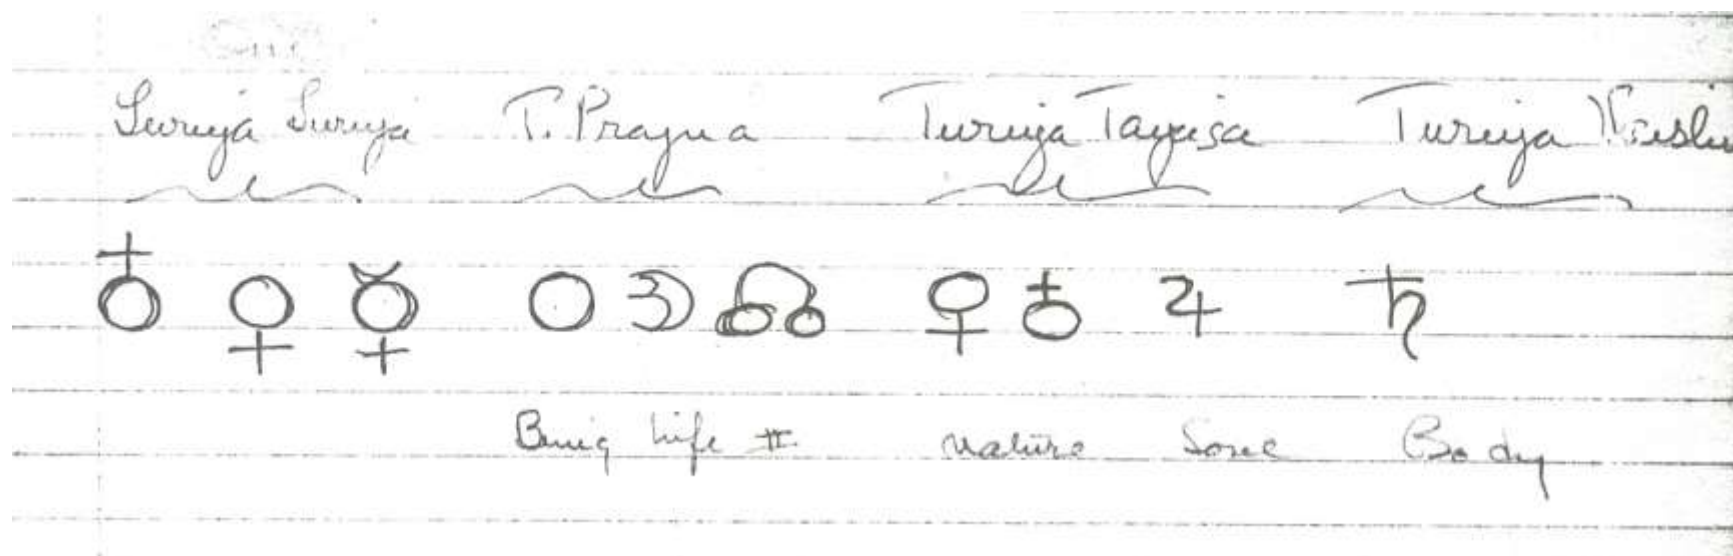 Turiya Turiya T. Prajna Turiya Tayasa Turiya
♁ ♀ ☿ ○ ☽ ☊ ♀ ♁ ♃ ♄
Being Life II Nature Soul Body